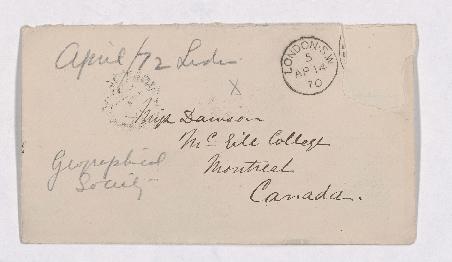 April /72
LONDON·S.W
5
AP 14
70
X
Miss Dawson
McGill College
Montreal
Canada.
Geographical
Society